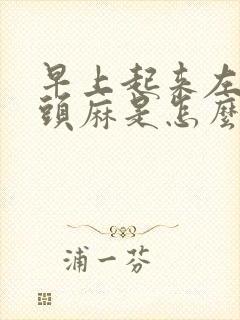 早上起来左
頭麻是怎麼
浦一芬